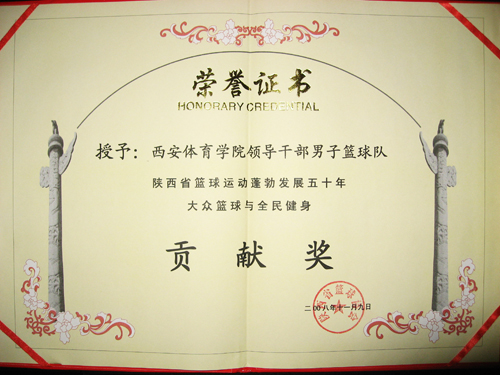 荣誉证书
HONORARY CREDENTIAL
授予：西安体育学院领导干部男子篮球队
陕西省篮球运动蓬勃发展五十年
大众篮球与全民健身
贡献奖
二〇〇八年十一月九日